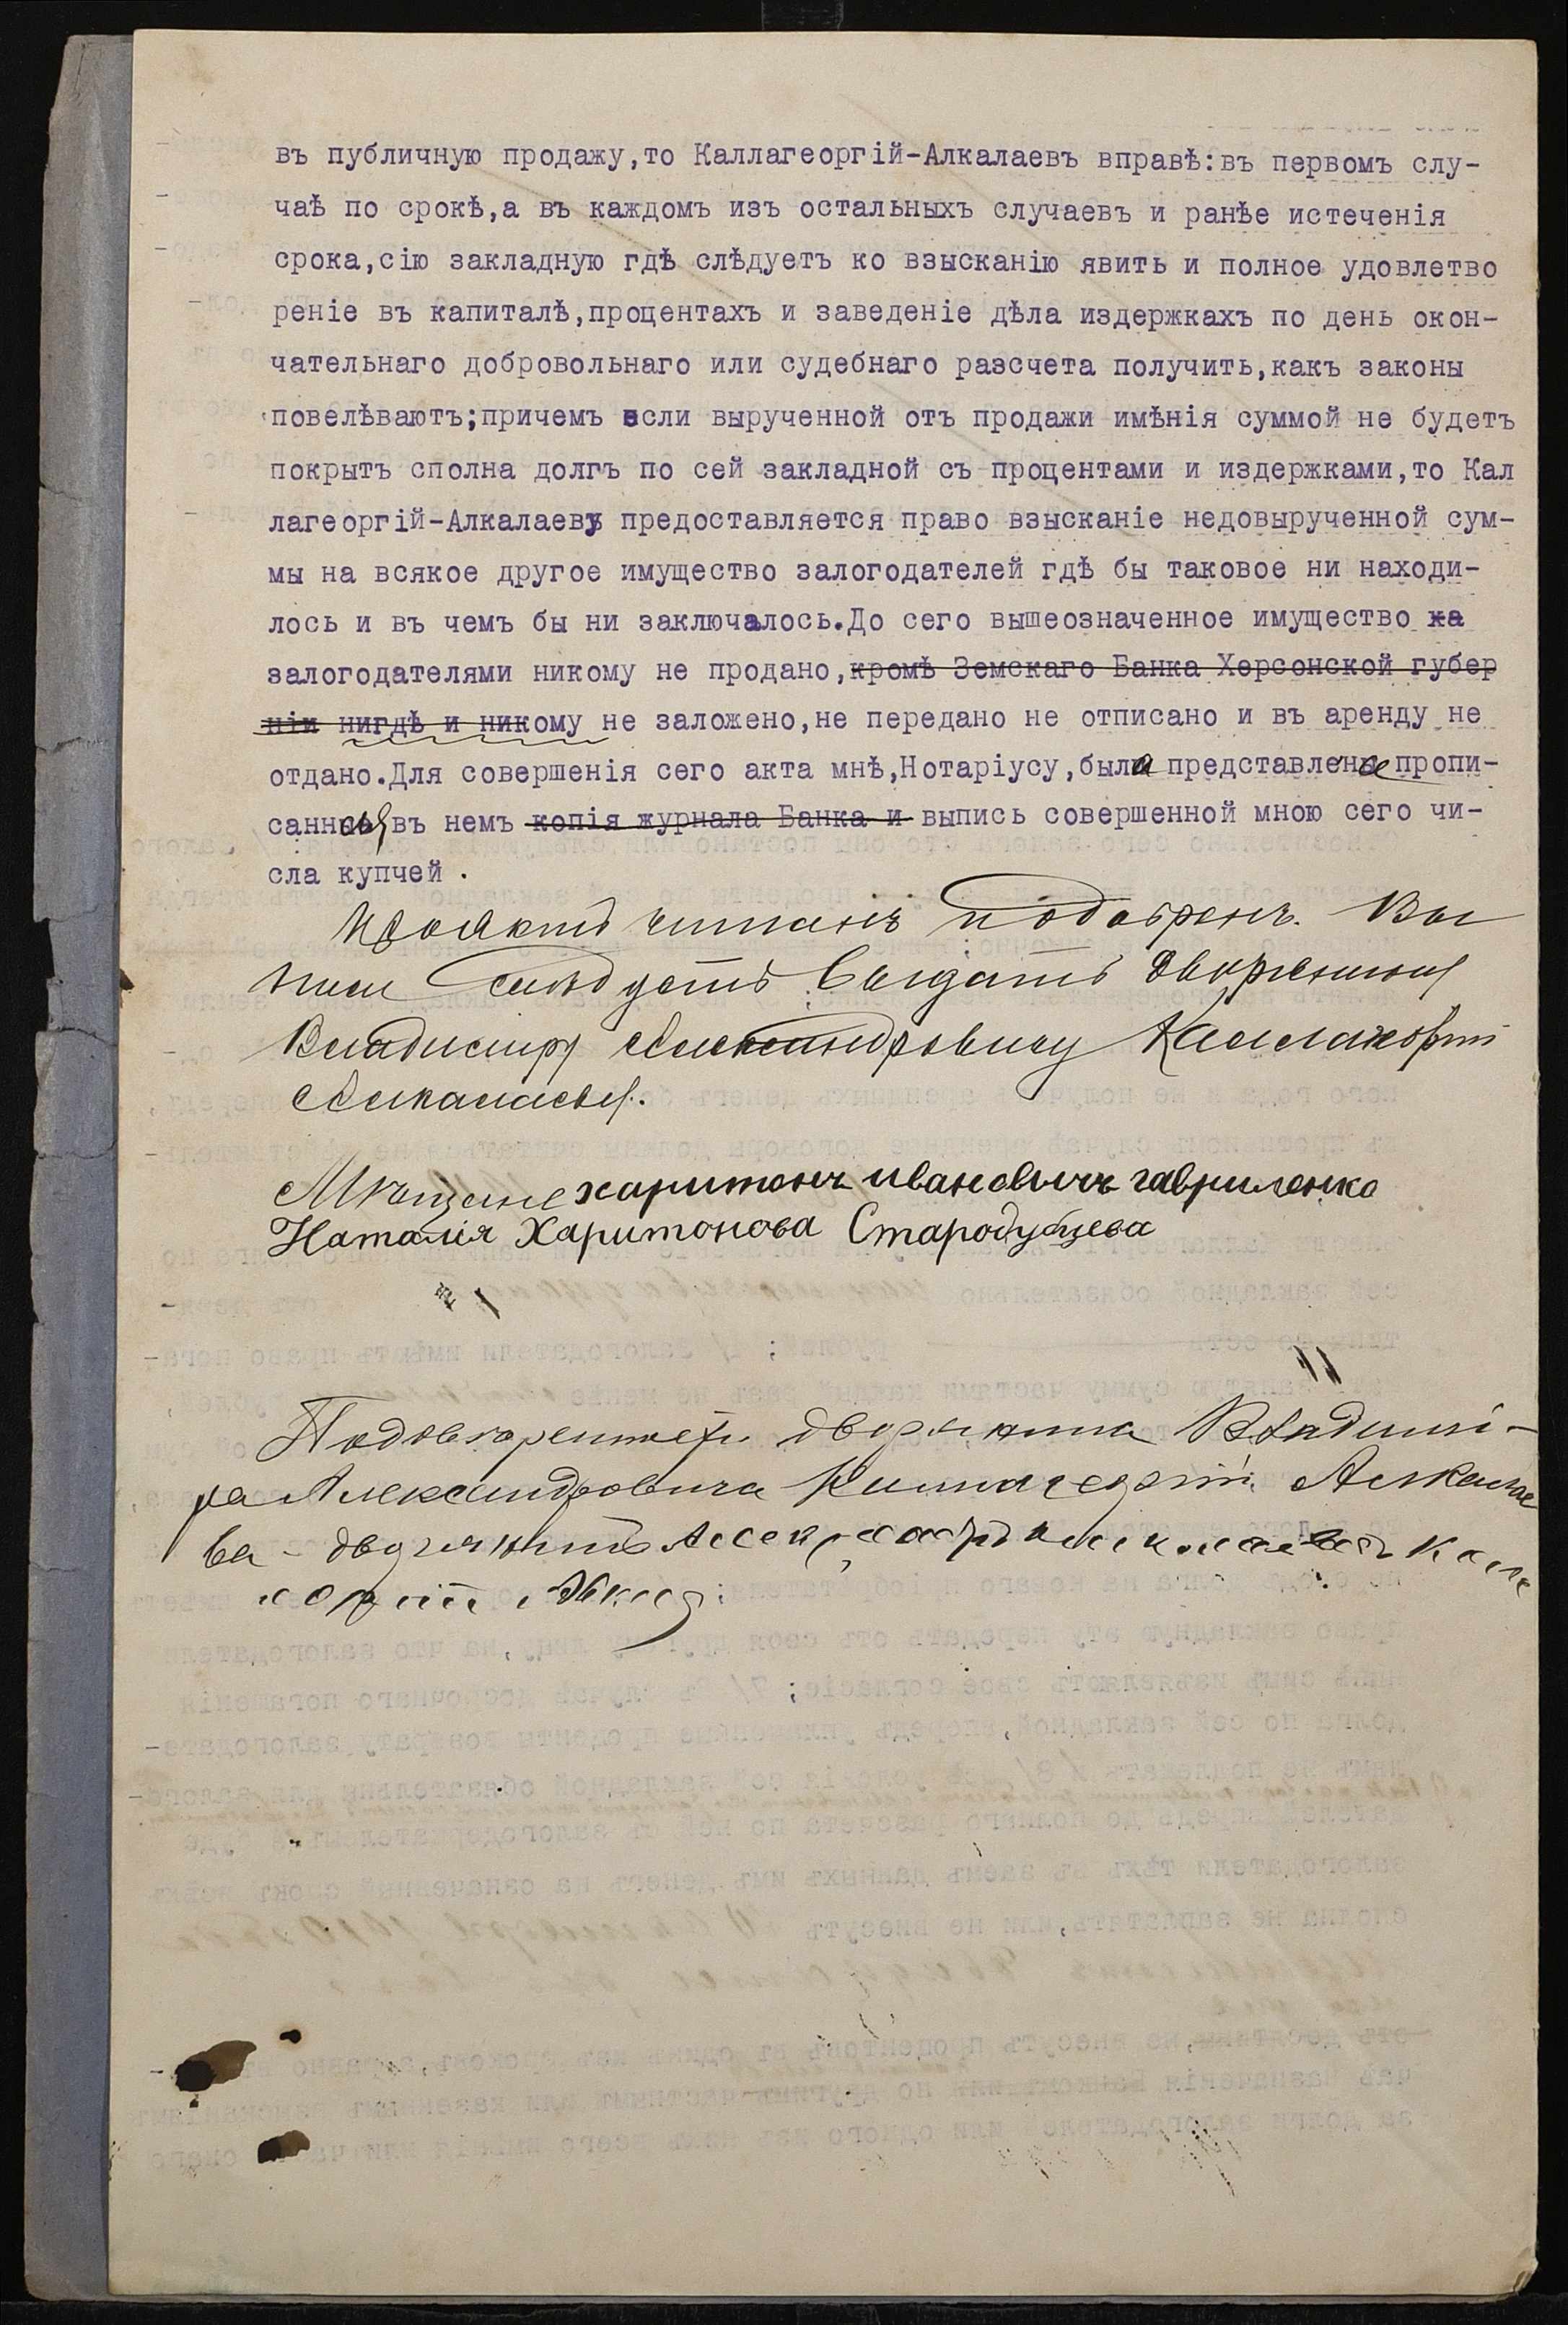 въ публичную продажу,то Каллагеоргій-Алкалаевъ вправѣ:въ первомъ слу-
чаѣ по срокѣ,а въ каждомъ изъ остальныхъ случаевъ и ранѣе истеченія
срока,сію закладную гдѣ слѣдуетъ ко взысканію явить и полное удовлетво
реніе въ капиталѣ,процентахъ и заведеніе дѣла издержкахъ по день окон-
чательнаго добровольнаго или судебнаго разсчета получить,какъ законы
повелѣваютъ;причемъ если вырученной отъ продажи имѣнія суммой не будетъ
покрытъ сполна долгъ по сей закладной съ процентами и издержками,то Кал
лагеоргій-Алкалаеву предоставляется право взысканіе недовырученной сум-
мы на всякое другое имущество залогодателей гдѣ бы таковое ни находи-
лось и въ чемъ бы ни заключалось.До сего вышеозначенное имущество ха
залогодателями никому не продано,кромѣ Земскаго Банка Херсонской губер
ніи нигдѣ и никому не заложено,не передано не отписано и въ аренду не
отдано.Для совершенія сего акта мнѣ,Нотаріусу,была представлена пропи-
санная въ немъ копія журнала Банка и выпись совершенной мною сего чи-
сла купчей .
Проактъ читанъ и одобренъ. Вы
пись слѣдуетъ выдать дворянину
Владиміру Александровичу Каллагеоргій
Алкалаеву.
Мѣщане харитонъ ивановичъ гавриленко
Наталія Харитонова Стародубцева
По довѣренности дворянина Владимі-
ра Александровича Каллагеоргій Алкалае
ва - дворянинъ